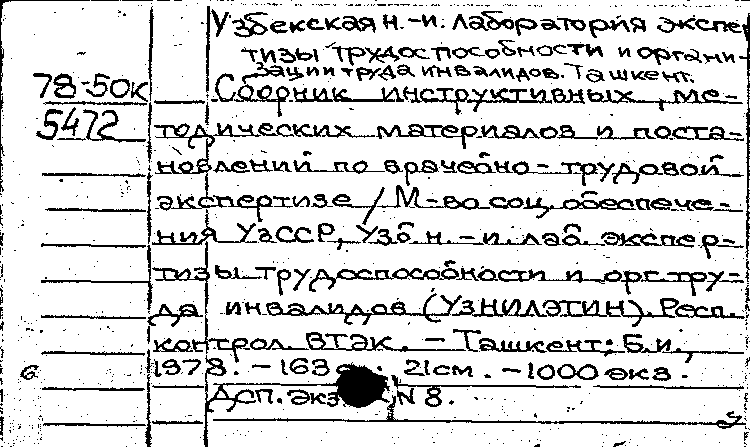 Узбекская н.-и. лаборатория экспер
тизы трудоспособности и органи-
зации труда инвалидов. Ташкент.
78-50к Сборник инструктивных, ме-
5472 тодических материалов и поста-
новлений по врачебно-трудовой
экспертизе / М-во соц. обеспече-
ния УзССР, Узб. н.-и. лаб. экспер-
тизы трудоспособности и орг. тру-
да инвалидов (УЗНИЛЭТИН). Респ.
контрол. ВТЭК. - Ташкент: Б.и.,
1978. - 163 с. 21см. - 1000 экз.
Доп. экз. N 8.